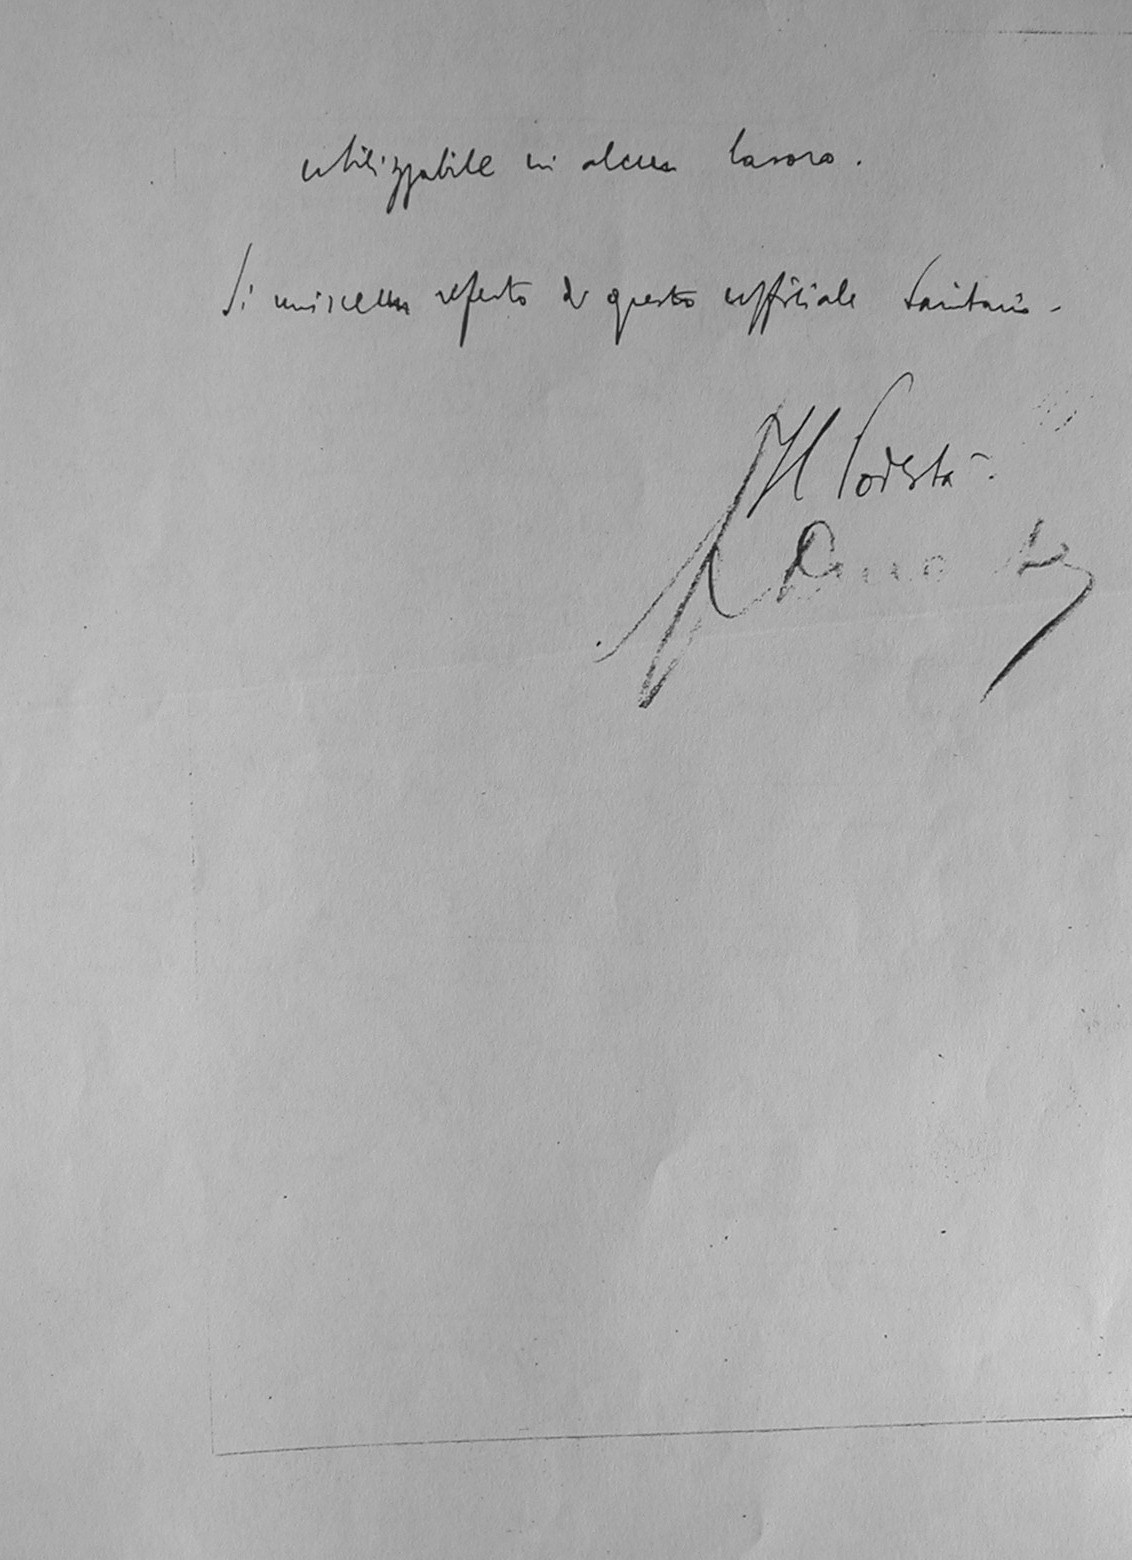 utilizzabile in alcun lavoro.
Si unisce un referto di questo ufficiale Sanitario-
Il Podestà.